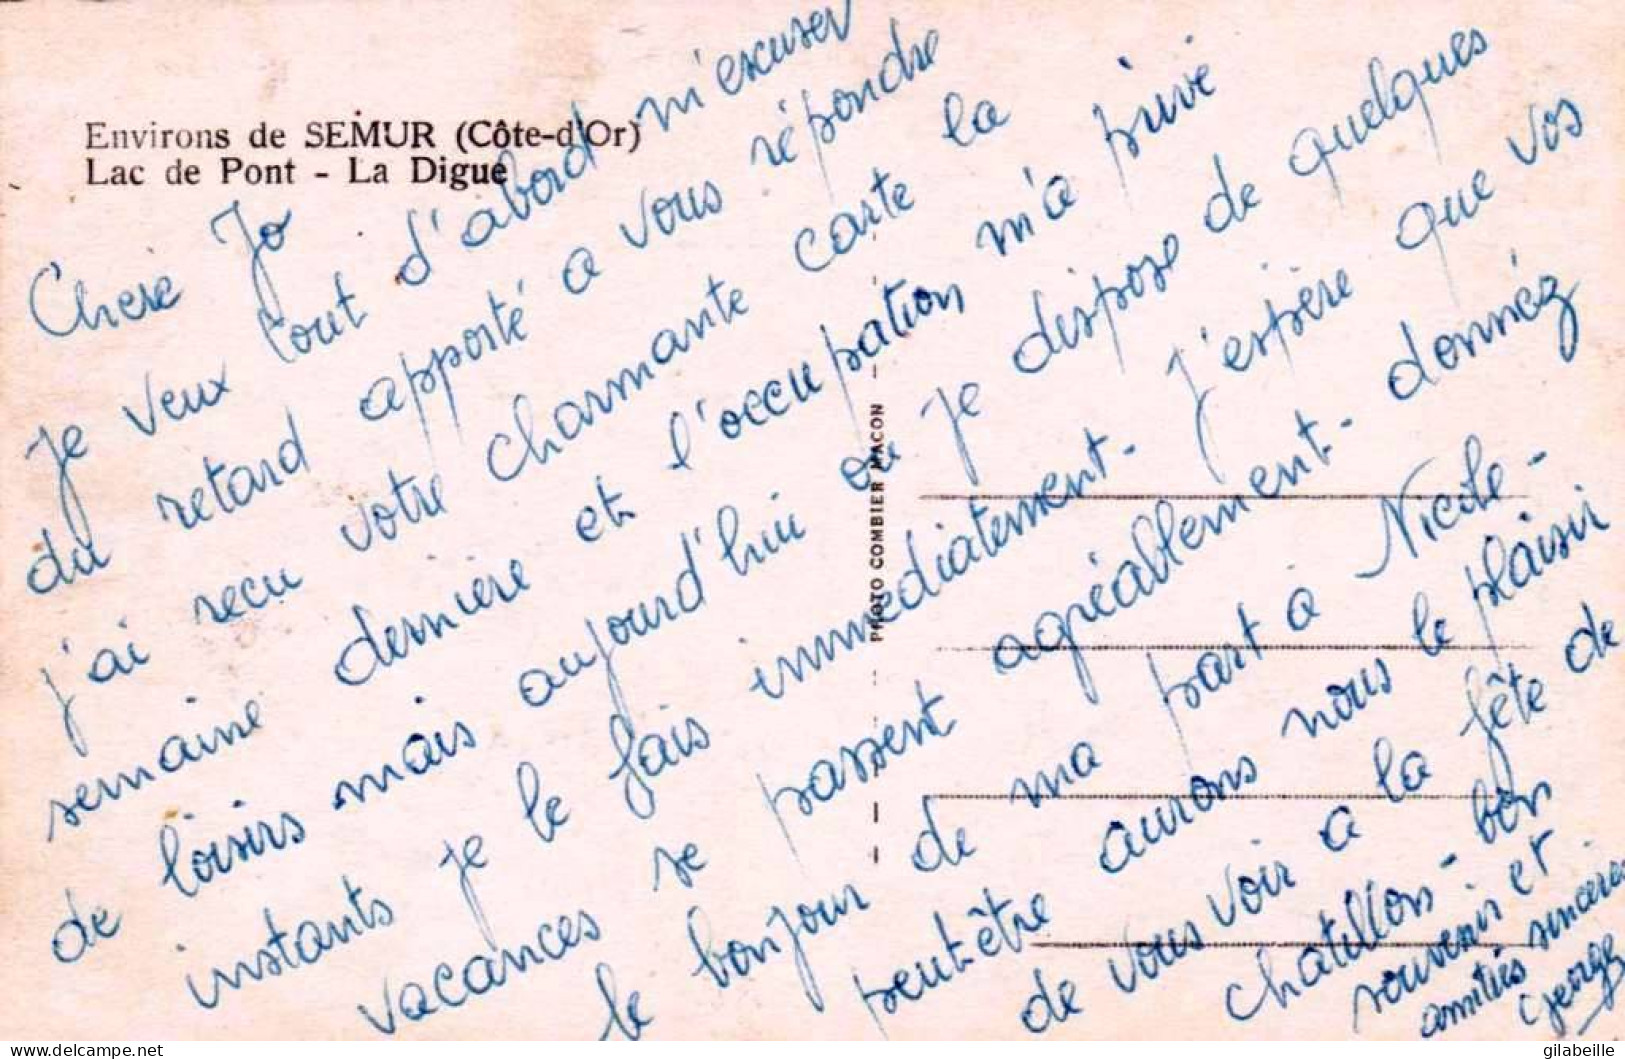 Environs de SEMUR (Côte-d'Or)
Lac de Pont - La Digue
Chere Jo
Je veux tout d'abord m'excuser
du retard apporté a vous répondre
j'ai recu votre charmante carte la
semaine derniere et l'occupation m'a privé
de loisirs mais aujourd'hui ou je dispose de quelques
instants je le fais immédiatement. J'espère que vos
vacances se passent agréablement. donnéz
le bonjour de ma part a Nicole -
peut-être aurons nous le plaisir
de vous voir a la fête de
chatillon - bon
souvenir et
amitiés sincères
George
PHOTO COMBIER MACON
gilabeille